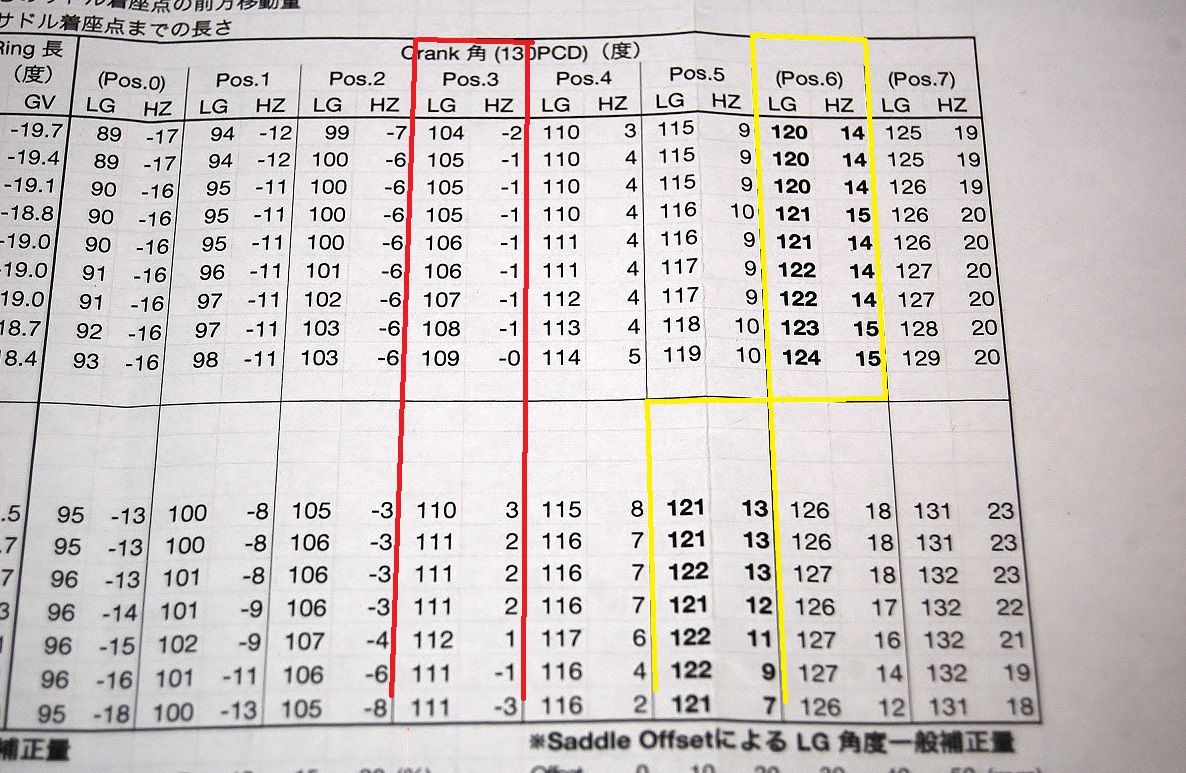 サドル着座点の前方移動量
サドル着座点までの長さ
Ring 長 Crank 角 (130PCD)（度）
（度） (Pos.0) Pos.1 Pos.2 Pos.3 Pos.4 Pos.5 (Pos.6) (Pos.7)
GV LG HZ LG HZ LG HZ LG HZ LG HZ LG HZ LG HZ LG HZ
-19.7 89 -17 94 -12 99 -7 104 -2 110 3 115 9 120 14 125 19
-19.4 89 -17 94 -12 100 -6 105 -1 110 4 115 9 120 14 125 19
-19.1 90 -16 95 -11 100 -6 105 -1 110 4 115 9 120 14 126 19
-18.8 90 -16 95 -11 100 -6 105 -1 110 4 116 10 121 15 126 20
-19.0 90 -16 95 -11 100 -6 106 -1 111 4 116 9 121 14 126 20
-19.0 91 -16 96 -11 101 -6 106 -1 111 4 117 9 122 14 127 20
19.0 91 -16 97 -11 102 -6 107 -1 112 4 117 9 122 14 127 20
18.7 92 -16 97 -11 103 -6 108 -1 113 4 118 10 123 15 128 20
8.4 93 -16 98 -11 103 -6 109 -0 114 5 119 10 124 15 129 20
.5 95 -13 100 -8 105 -3 110 3 115 8 121 13 126 18 131 23
.7 95 -13 100 -8 106 -3 111 2 116 7 121 13 126 18 131 23
7 96 -13 101 -8 106 -3 111 2 116 7 122 13 127 18 132 23
3 96 -14 101 -9 106 -3 111 2 116 7 121 12 126 17 132 22
96 -15 102 -9 107 -4 112 1 117 6 122 11 127 16 132 21
96 -16 101 -11 106 -6 111 -1 116 4 122 9 127 14 132 19
95 -18 100 -13 105 -8 111 -3 116 2 121 7 126 12 131 18
補正量 ※Saddle Offsetによる LG 角度一般補正量